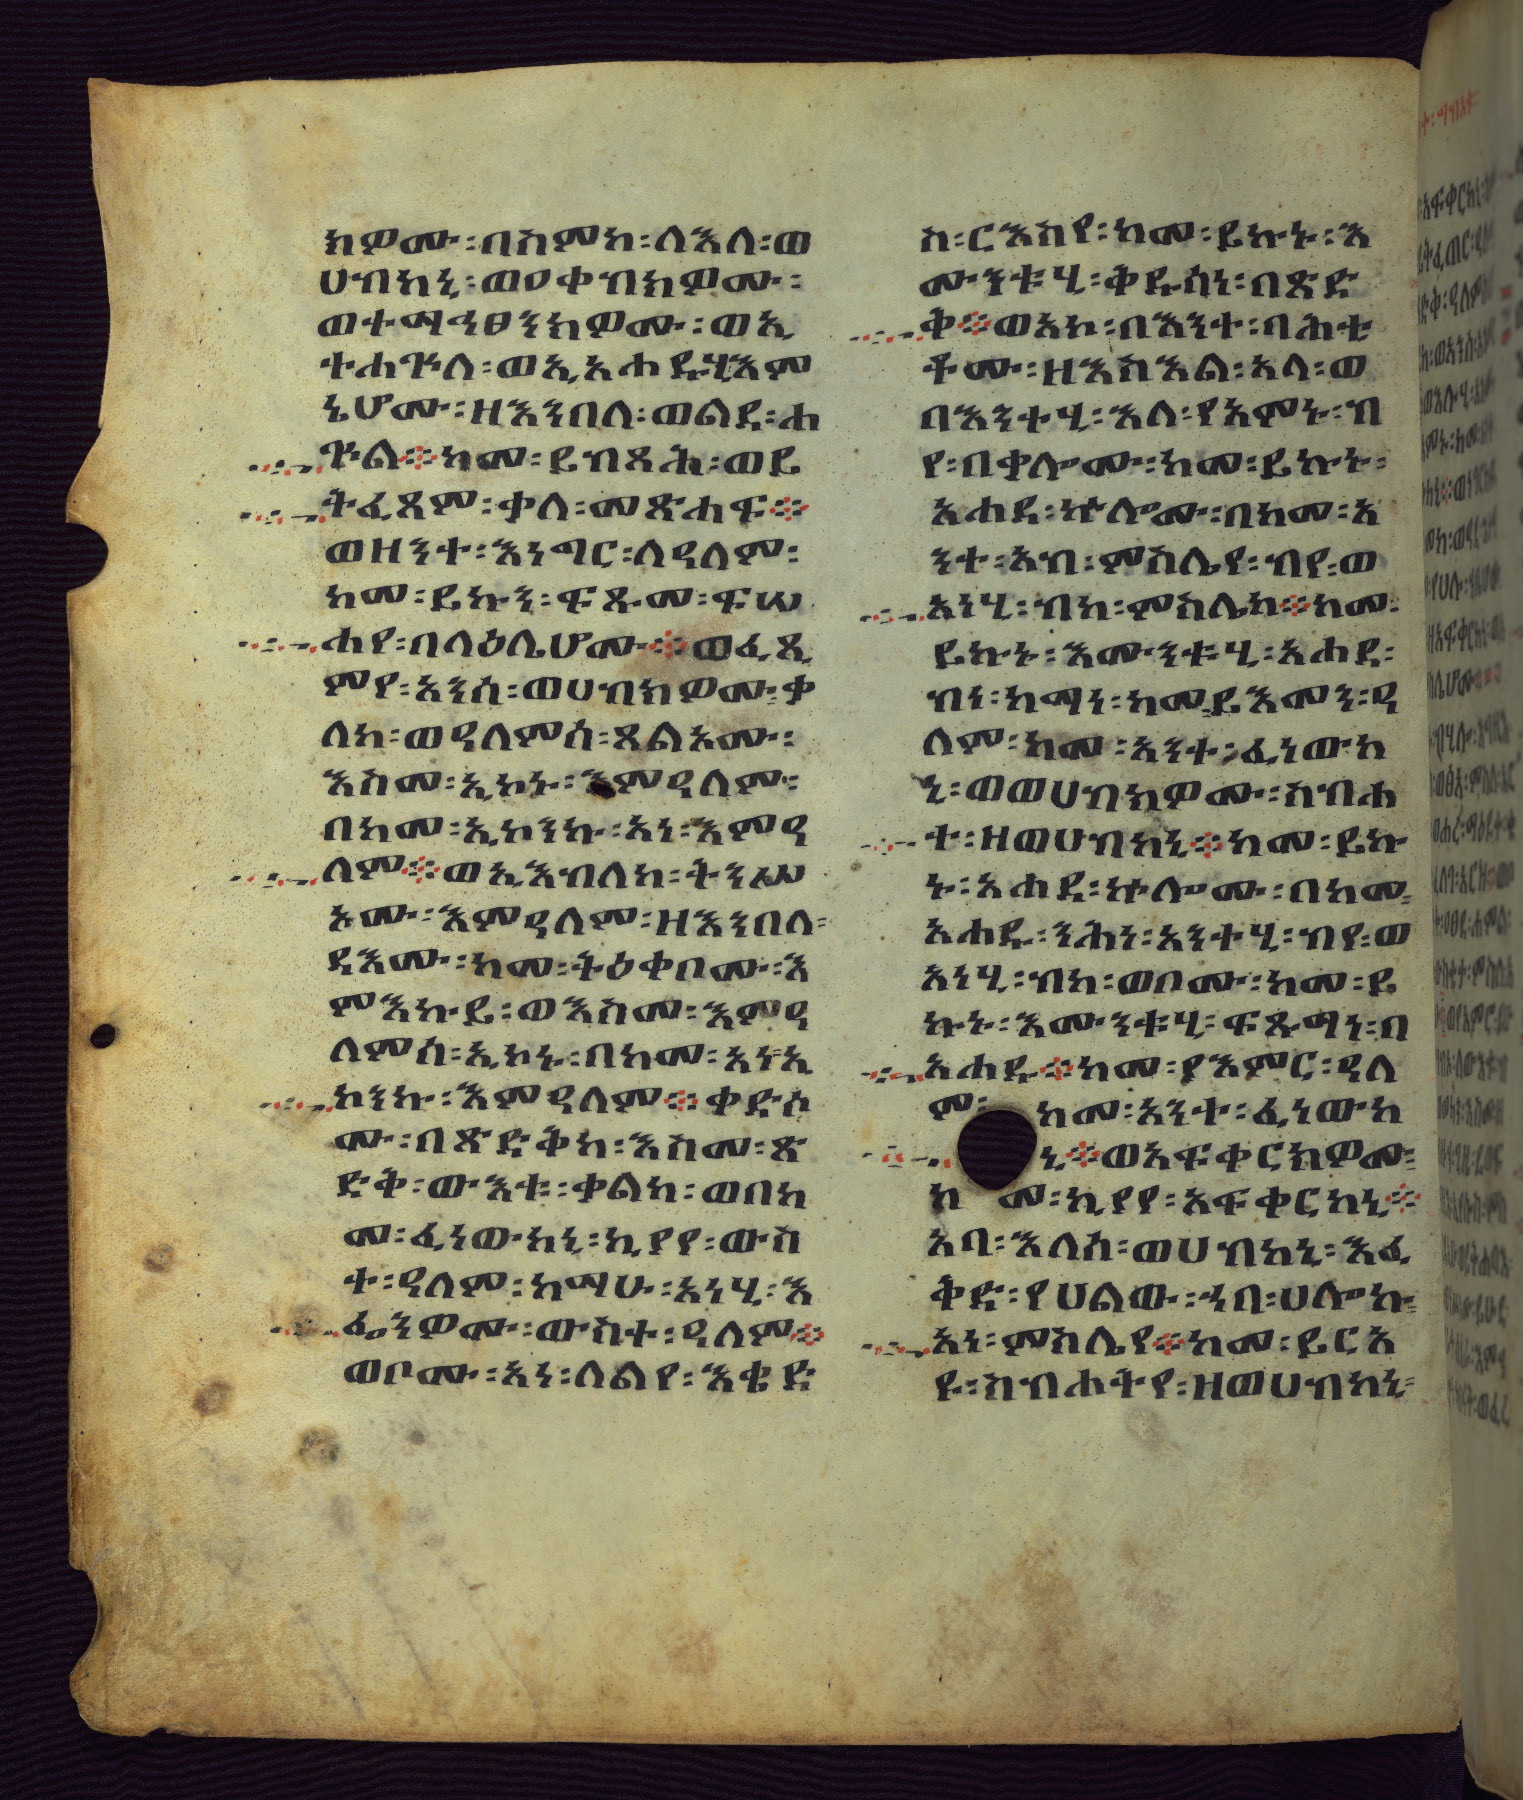 ክዎሙ፡በስምከ፡ለእለ፡ወ
ሀብከኒ፡ወዐቀብክዎሙ፡
ወተማኅፀንክዎሙ፡ወኢ
ተሐጕለ፡ወኢአሐዱሂ፡እም
ኔሆሙ፡ዘእንበለ፡ወልደ፡ሐ
ጕል፨ከመ፡ይብጻሕ፡ወይ
ትፈጸም፡ቃለ፡መጽሐፍ፨
ወዘንተ፡እነግር፡ለዓለም፡
ከመ፡ይኩን፡ፍጹመ፡ፍሠ
ሐየ፡በላዕሌሆሙ፨ወፈጺ
ምየ፡አንሰ፡ወሀብክዎሙ፡ቃ
ለከ፡ወዓለምሰ፡ጸልአሙ፡
እስመ፡ኢኮኑ፡እምዓለም፡
በከመ፡ኢኮንኩ፡አነ፡እምዓ
ለም፨ወኢእብለከ፡ትንሥ
አሙ፡እምዓለም፡ዘእንበለ፡
ዳእሙ፡ከመ፡ትዕቀቦሙ፡እ
ምእኩይ፡ወእስመ፡እምዓ
ለምሰ፡ኢኮኑ፡በከመ፡አነ፡ኢ
ኮንኩ፡እምዓለም፨ቀድሶ
ሙ፡በጽድቅከ፡እስመ፡ጽ
ድቅ፡ውእቱ፡ቃልከ፡ወበከ
መ፡ፈነውከኒ፡ኪያየ፡ውስ
ተ፡ዓለም፡ከማሁ፡አነሂ፡እ
ፌንዎሙ፡ውስተ፡ዓለም፨
ወቦሙ፡አነ፡ለልየ፡እቄድ
ስ፡ርእስየ፡ከመ፡ይኩኑ፡እ
ሙንቱሂ፡ቅዱሳነ፡በጽድ
ቅ፨ወአኮ፡በእንተ፡ባሕቲ
ቶሙ፡ዘእስእል፡አላ፡ወ
በእንተሂ፡እለ፡የአምኑ፡ብ
የ፡በቃሎሙ፡ከመ፡ይኩኑ፡
አሐደ፡ኵሎሙ፡በከመ፡አ
ንተ፡አብ፡ምስሌየ፡ብየ፡ወ
አነሂ፡ብከ፡ምስሌከ፨ከመ፡
ይኩኑ፡እሙንቱሂ፡አሐደ፡
ብነ፡ከማነ፡ከመ፡ይእመን፡ዓ
ለም፡ከመ፡አንተ፡ፈነውከ
ኒ፡ወወሀብክዎሙ፡ስብሐ
ተ፡ዘወሀብከኒ፨ከመ፡ይኩ
ኑ፡አሐደ፡ኵሎሙ፡በከመ፡
አሐዱ፡ንሕነ፡አንተሂ፡ብየ፡ወ
አነሂ፡ብከ፡ወቦሙ፡ከመ፡ይ
ኩኑ፡እሙንቱሂ፡ፍጹማነ፡በ
አሐዱ፨ከመ፡ያእምር፡ዓለ
ም፡ከመ፡አንተ፡ፈነውከ
ኒ፨ወአፍቀርክዎሙ፡
ከመ፡ኪያየ፡አፍቀርከኒ፨
አባ፡እለሰ፡ወሀብከኒ፡እፈ
ቅድ፡የሀልው፡ኀበ፡ሀሎኩ፡
አነ፡ምስሌየ፨ከመ፡ይርአ
ዩ፡ስብሐትየ፡ዘወሀብከኒ፡